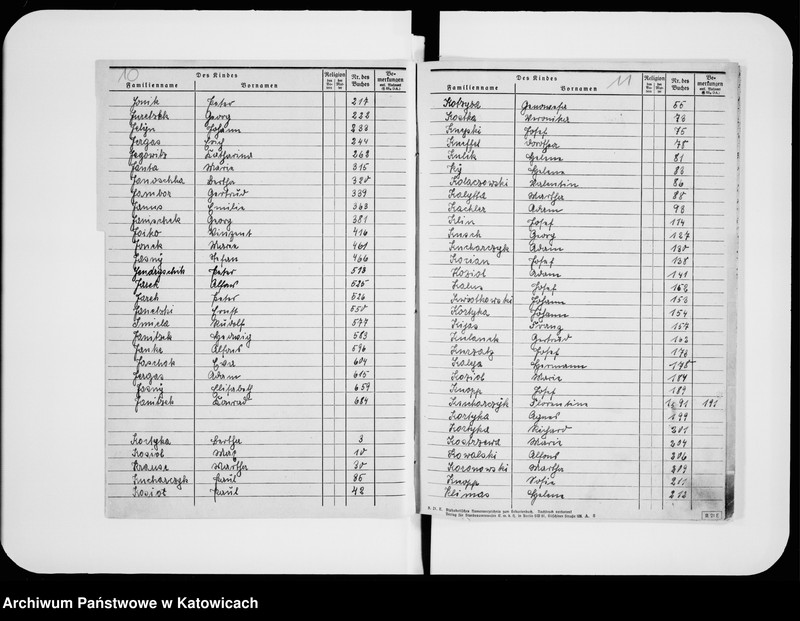 10
Des Kindes Religion Nr. des Buches Bemerkungen
Familienname Vornamen
Jonik Peter 217
Juretzek Georg 222
Johann 233
Jergas Erich 244
Jegowitz Katharina 262
Janta Marie 315
Janoschka Bertha 320
Jambor Gertrud 339
Janus Emilie 363
Janischek Georg 381
Josko Vinzent 416
Jonek Marie 461
Jasny Stefan 466
Jendryschik Peter 513
Jarek Alfons 525
Jarek Peter 526
Janetzki Ernst 550
Rudolf 577
Janitzek Hedwig 583
Janke Alfons 596
Joschok Eva 604
Jergas Adam 615
Jasny Elisabeth 659
Janitzek Konrad 684
Kortyka Bertha 3
Kosiol Max 10
Krause Martha 30
Kucharczyk Paul 35
Kosiol Paul 42
11
Des Kindes Religion Nr. des Buches Bemerkungen
Familienname Vornamen
Kotzyba Genowefa 55
Kostka Veronika 73
Josef 75
Kneffel Dorothea 78
Kulik Helene 81
Helene 83
Kolaczowski Valentin 86
Kalytta Martha 88
Kachler Adam 93
Klin Josef 114
Kusch Georg 127
Kucharczyk Adam 130
Kocian Josef 138
Koziol Adam 141
Kalus Josef
Kwiotkowski Johann 153
Kortyka Johann 154
Kijas Franz 157
Kulanek Gertrud 163
Josef 173
Kalya Hermann 175
Koziol Marie 184
Knopp Josef 189
Kucharczyk Florentine 191 191
Kortyka Agnes 199
Kortyka Richard 201
Kostrzewa Marie 204
Kowalski Alfons 206
Koronowski Martha 209
Knopp Sofie 211
Klimas Helene 212
Archiwum Państwowe w Katowicach